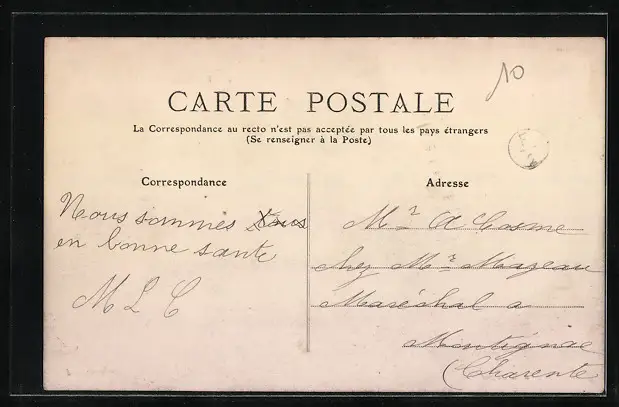 10
CARTE POSTALE
La Correspondance au recto n'est pas acceptée par tous les pays étrangers
(Se renseigner à la Poste)
Correspondance
Adresse
Nous sommes tous
en bonne sante
M L C
Mr A Cosme
chez Mr Mazeau
Maréchal a
Montignac
(Charente